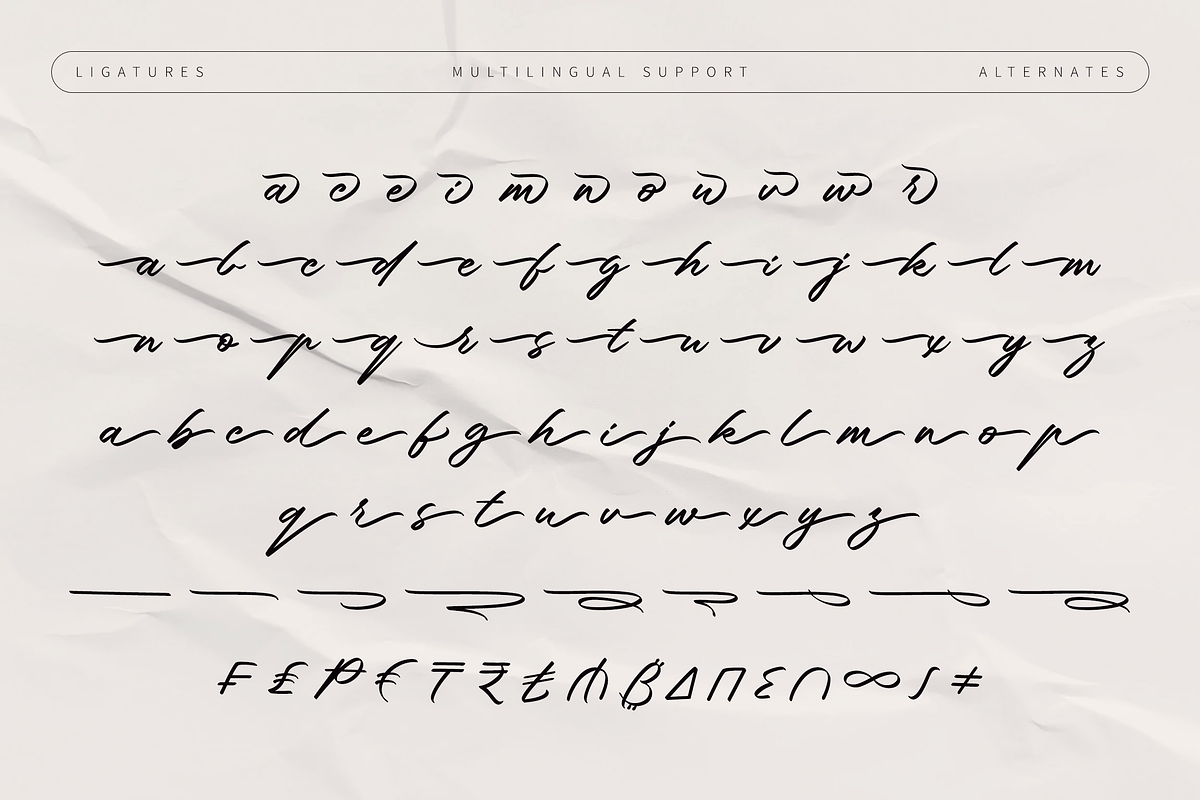 LIGATURES MULTILINGUAL SUPPORT ALTERNATES
a c e i m n o u v w r
a b c d e f g h i j k l m
n o p q r s t u v w x y z
a b c d e f g h i j k l m n o p
q r s t u v w x y z
₣ £ ₽ € ₸ ₹ ₺ ₼ ₿ ∆ ∏ Ɛ ∩ ∞ ∫ ≠